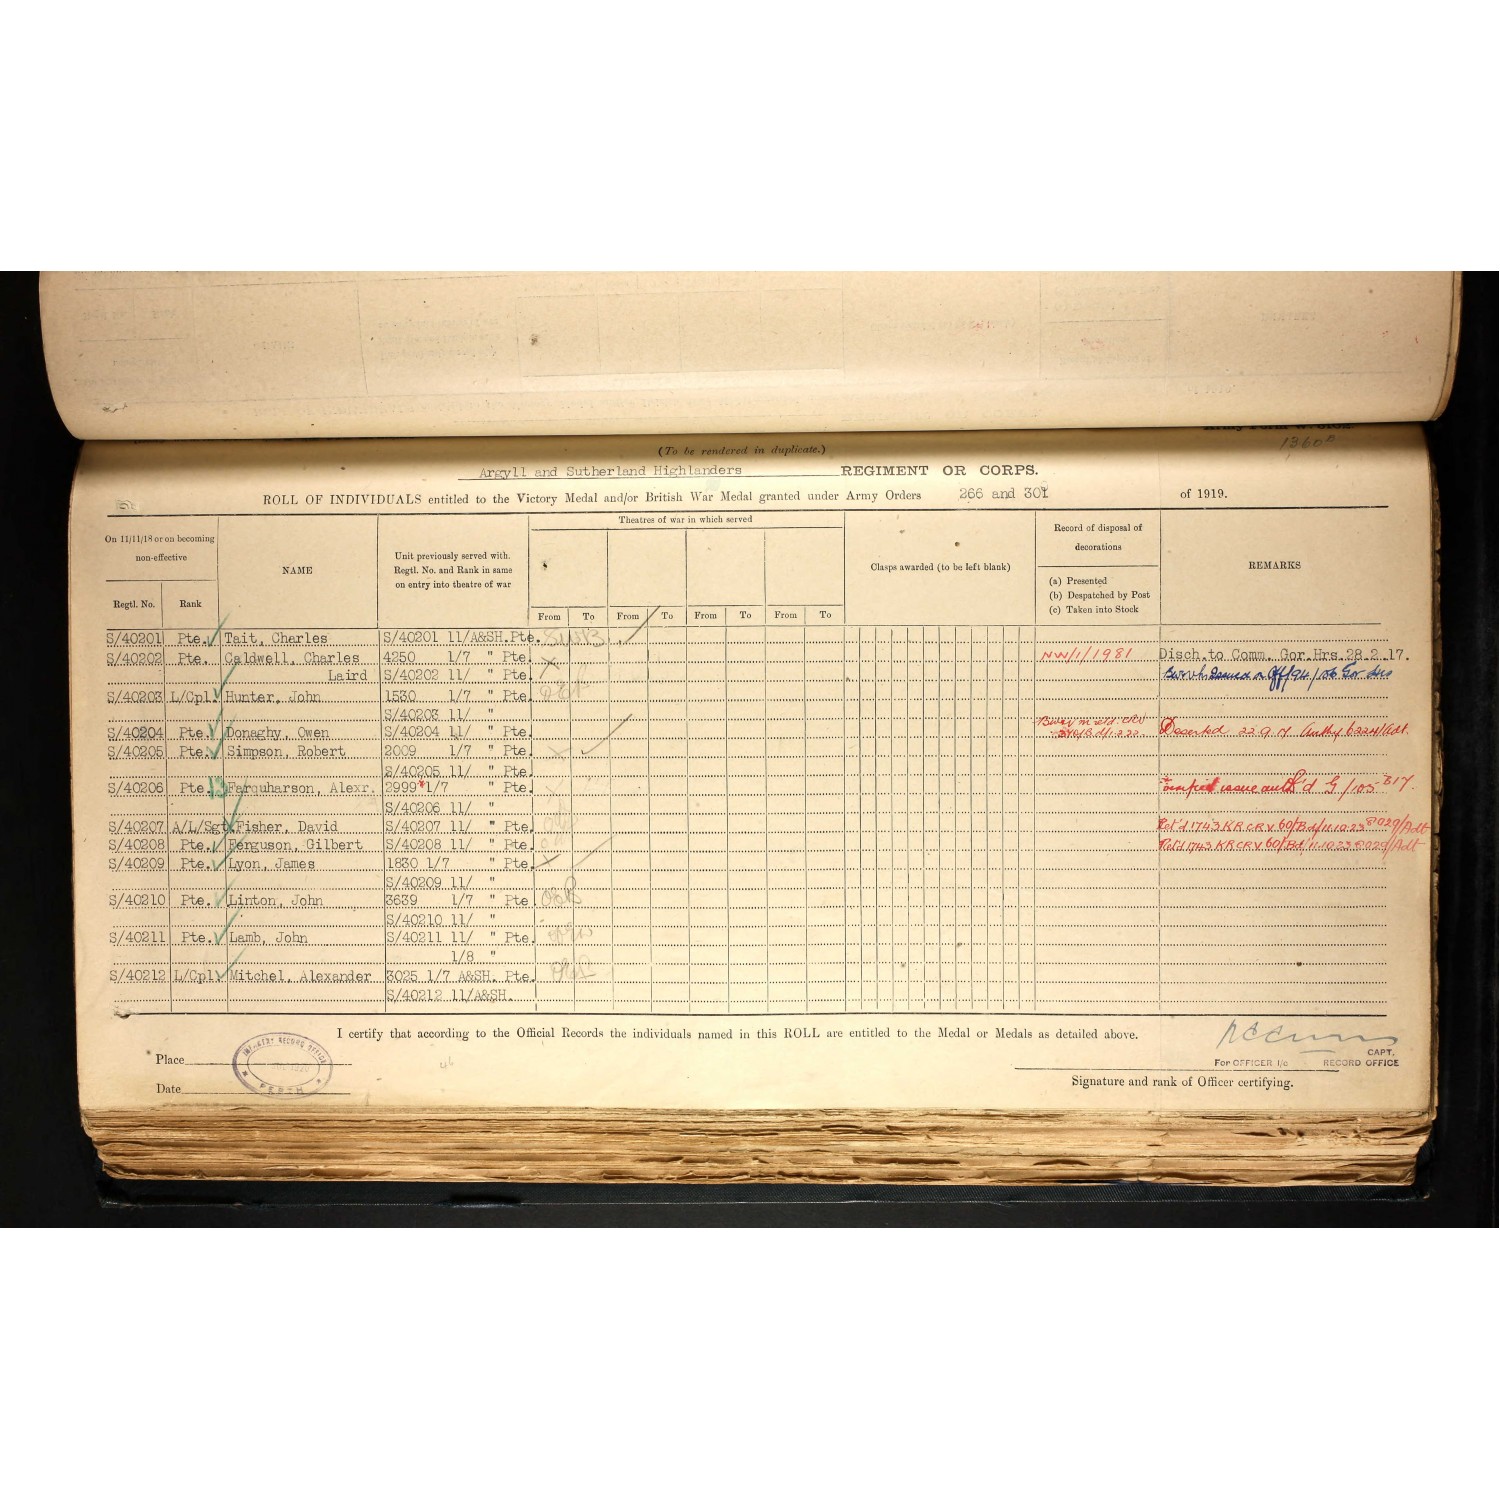 1360
(To be rendered in duplicate.)
Argyll and Sutherland Highlanders REGIMENT OR CORPS.
ROLL OF INDIVIDUALS entitled to the Victory Medal and/or British War Medal granted under Army Orders 266 and 301 of 1919.
On 11/11/18 or on becoming non-effective
Regtl. No. Rank
NAME
Unit previously served with. Regtl. No. and Rank in same on entry into theatre of war
Theatres of war in which served
From To From To From To From To
Clasps awarded (to be left blank)
Record of disposal of decorations
(a) Presented
(b) Despatched by Post
(c) Taken into Stock
REMARKS
S/40201 Pte. Tait, Charles S/40201 11/A&SH.Pte.
S/40202 Pte. Caldwell, Charles 4250 1/7 " Pte. NW/1/1981 Disch.to Comm. Gor.Hrs.28.2.17.
Laird S/40202 11/ " Pte.
S/40203 L/Cpl. Hunter, John 1530 1/7 " Pte.
S/40203 11/ "
S/40204 Pte. Donaghy, Owen S/40204 11/ " Pte. Deserted 22.9.17
S/40205 Pte. Simpson, Robert 2009 1/7 " Pte.
S/40205 11/ " Pte.
S/40206 Pte. Farquharson, Alexr. 2999 * 1/7 " Pte. issue
S/40206 11/ "
S/40207 A/L/Sgt. Fisher, David S/40207 11/ " Pte. Ret'd 1743 KRCRV 60/Bd/11.10.23 8029/Adt
S/40208 Pte. Ferguson, Gilbert S/40208 11/ " Pte. Ret'd 1743 KRCRV 60/Bd/11.10.23 8029/Adt
S/40209 Pte. Lyon, James 1830 1/7 " Pte.
S/40209 11/ "
S/40210 Pte. Linton, John 3639 1/7 " Pte
S/40210 11/ "
S/40211 Pte. Lamb, John S/40211 11/ " Pte.
1/8 "
S/40212 L/Cpl. Mitchel, Alexander 3025 1/7 A&SH. Pte.
S/40212 11/A&SH.
I certify that according to the Official Records the individuals named in this ROLL are entitled to the Medal or Medals as detailed above.
Place
INFANTRY RECORD OFFICE
PERTH
Date
CAPT.
For OFFICER I/c RECORD OFFICE
Signature and rank of Officer certifying.